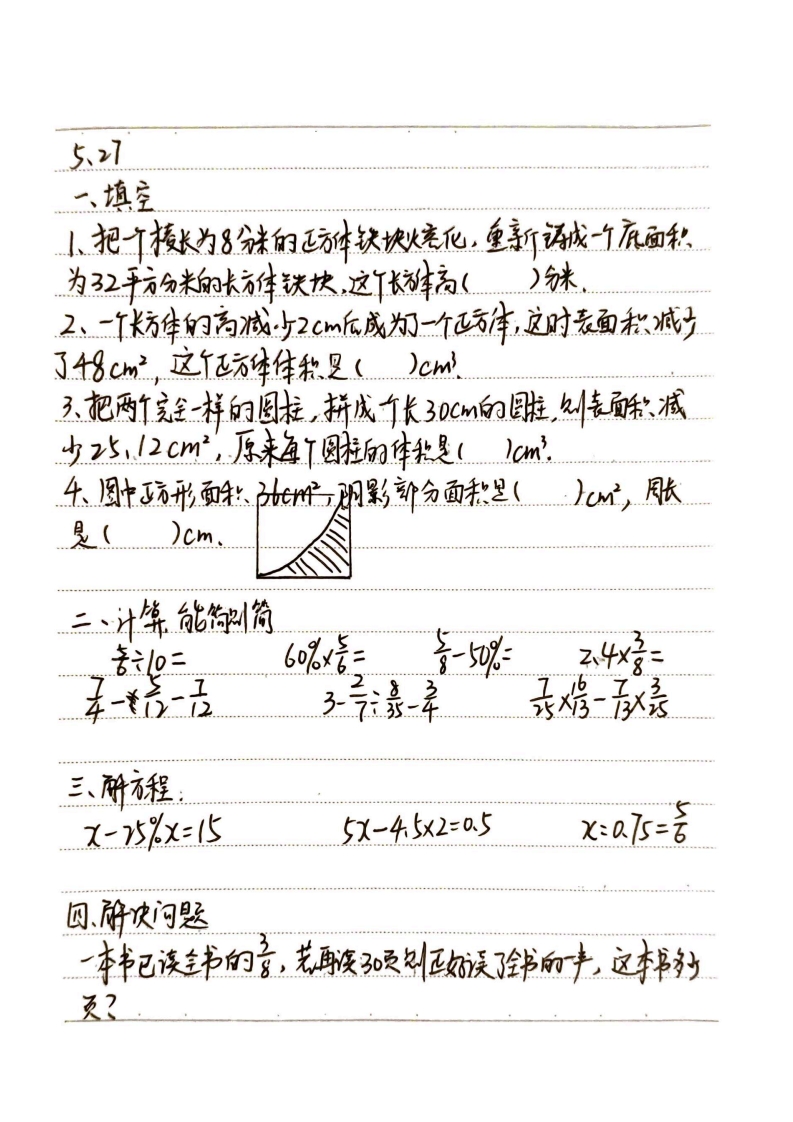 5、27
一、填空
1、把一个棱长为8分米的正方体铁块熔化，重新铸成一个底面积
为32平方分米的长方体铁块、这个长方体高(  )分米.
2、一个长方体的高减少2cm后成为了一个正方体，这时表面积减少
了48cm²，这个正方体体积是(  )cm³.
3、把两个完全一样的圆柱，拼成一个长30cm的圆柱,则表面积减
少25.12cm²，原来每个圆柱的体积是(  )cm³.
4、图中正方形面积36cm²，阴影部分面积是(  )cm²，周长
是(  )cm.
二、计算,能简则简
5/6÷10=  60%×5/6=  5/8-50%=  2.4×3/8=
7/4-5/12-7/12  3-2/7÷8/35-3/4  7/25×16/13-7/13×3/25
三、解方程：
x-25%x=15  5x-4.5×2=0.5  x:0.75=5/6
四、解决问题
一本书已读全书的3/8，若再读30页则正好读了全书的一半，这本书多少
页?